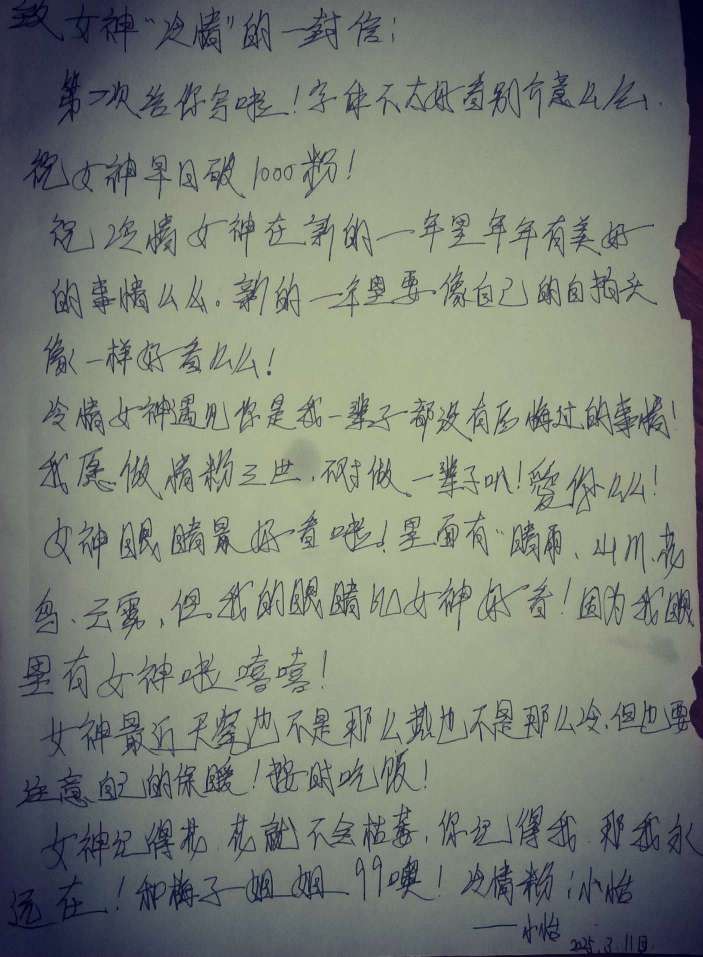 致女神“冷情”的一封信：
第一次给你写啦！字体不太好看别介意么么.
祝女神早日破1000粉！
祝冷情女神在新的一年里年年有美好
的事情么么。新的一年里要像自己的自拍头
像一样好看么么！
冷情女神遇见你是我一辈子都没有后悔过的事情！
我愿做情粉三世，不对做一辈子叭！爱你么么！
女神眼睛最好看啦！里面有“晴雨、山川、花
鸟、云雾，但我的眼睛比女神好看！因为我眼
里有女神啦嘻嘻！
女神最近天气也不是那么热也不是那么冷，但也要
注意自己的保暖！按时吃饭！
女神记得花，花就不会枯萎，你记得我，那我永
远在！和梅子姐姐99噢！冷情粉：小怡
——小怡 2025.3.11日